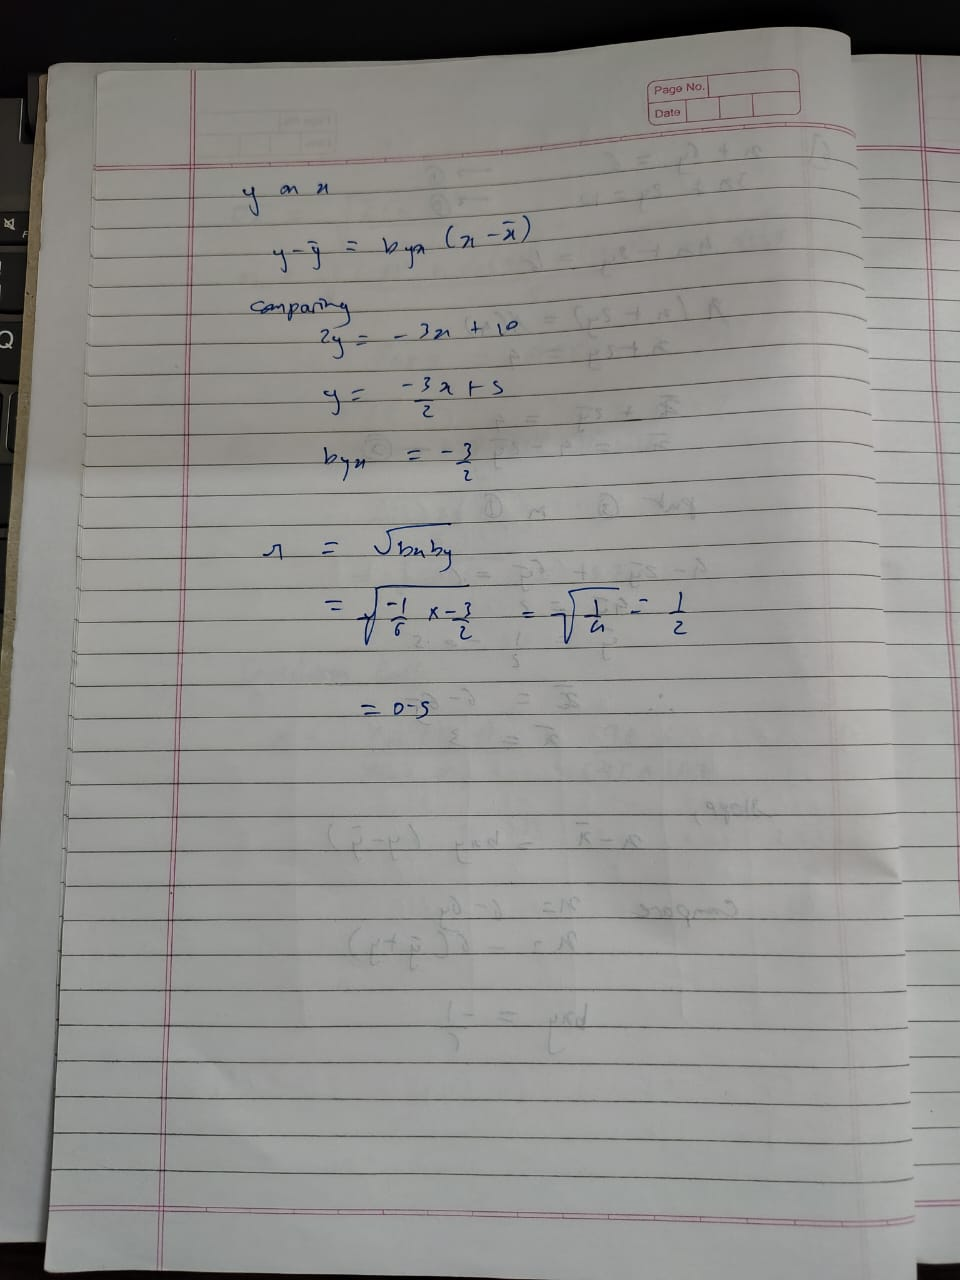 Page No.
Date
y on x
y - ȳ = byx (x - x̄)
comparing
2y = - 3x + 10
y = -3/2 x + 5
byx = - 3/2
r = √bxby
= √(-1/6 × -3/2) = √(1/4) = 1/2
= 0-5